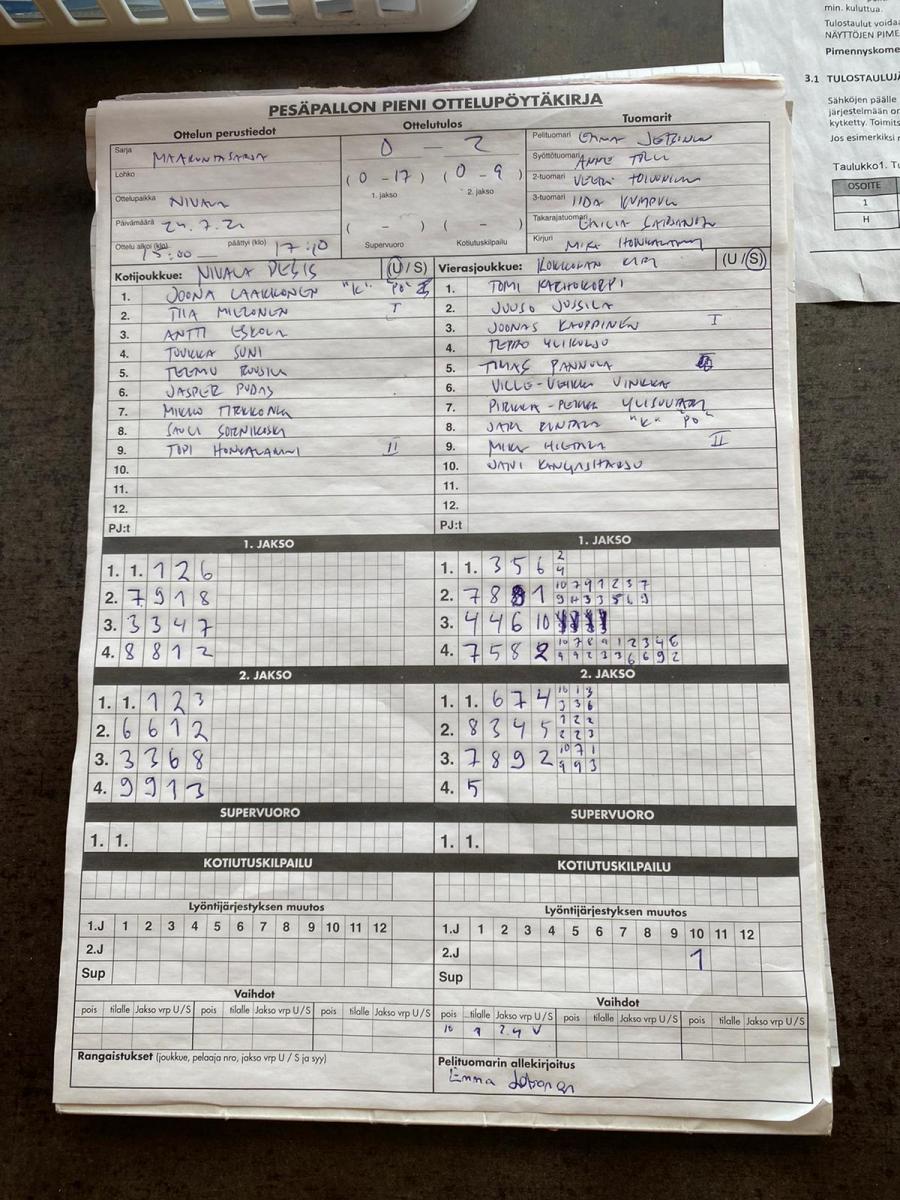 min. kuluttua.
Tulostaulut voidaa
NÄYTTÖJEN PIME
Pimennyskome
3.1 TULOSTAULUJÄ
Sähköjen päälle
järjestelmään on
kytketty. Toimits
Jos esimerkiksi
Taulukko1. Tu
OSOITE
1
H
PESÄPALLON PIENI OTTELUPÖYTÄKIRJA
Ottelun perustiedot
Ottelutulos
Tuomarit
Sarja MAAKUNTASARJA
0 – 2
Pelituomari EMMA
Lohko
(0 - 17) (0 - 9)
1. jakso 2. jakso
Syöttötuomari
2-tuomari
Ottelupaikka NIVALA
3-tuomari IIDA
Päivämäärä 24.7.2
( - ) ( - )
Takarajatuomari EMILIA
Ottelu alkoi (klo) 15:00 päättyi (klo) 17:10
Supervuoro Kotiutuskilpailu
Kirjuri MIKA HONKALAMMI
Kotijoukkue: NIVALA PESIS (U / S)
1. JOONA LAAKKONEN "K" PÖ
2. TIIA MIETTONEN I
3. ANTTI ESKOLA
4. TUUKKA SUNI
5. TEEMU
6. JASPER PUDAS
7. MIKKO PIRKKONEN
8. SAULI SORNIKOSKI
9. TOPI HONKALAMMI II
10.
11.
12.
PJ:t
Vierasjoukkue: KOKKOLAN (U / S)
1. TOMI KARHOKORPI
2. JUUSO JUSSILA
3. JOONAS KAUPPINEN I
4. TEPPO YLIKULJU
5. TIMAS PANNULA
6. VILLE-VEIKKO VINKKA
7. PIRKKA-PEKKA
8. JARI RINTALA "K" "PÖ"
9. MIKA HIETALA II
10. JANI KANGASHARJU
11.
12.
PJ:t
1. JAKSO
1. 1. 1 2 6
2. 7 9 1 8
3. 3 3 4 7
4. 8 8 1 2
1. JAKSO
1. 1. 3 5 6 2
4
2. 7 8 1 10 7 9 1 2 3 7
3. 4 4 6 10
4. 7 5 8 2 10 7 8 9 1 2 3 4 6
9 9 2 3 3 6 6 9 2
2. JAKSO
1. 1. 1 2 3
2. 6 6 1 2
3. 3 3 6 8
4. 9 9 1 3
2. JAKSO
1. 1. 6 7 4 10 1 3
3 3 6
2. 8 3 4 5 1 2 2
2 2 3
3. 7 8 9 2 10 7 1
9 9 3
4. 5
SUPERVUORO
1. 1.
SUPERVUORO
1. 1.
KOTIUTUSKILPAILU
KOTIUTUSKILPAILU
Lyöntijärjestyksen muutos
1.J 1 2 3 4 5 6 7 8 9 10 11 12
2.J
Sup
Lyöntijärjestyksen muutos
1.J 1 2 3 4 5 6 7 8 9 10 11 12
2.J 1
Sup
Vaihdot
pois tilalle Jakso vrp U / S pois tilalle Jakso vrp U / S pois tilalle Jakso vrp U / S
Vaihdot
pois tilalle Jakso vrp U / S pois tilalle Jakso vrp U / S pois tilalle Jakso vrp U / S
10 1 2.4 U
Rangaistukset (joukkue, pelaaja nro, jakso vrp U / S ja syy)
Pelituomarin allekirjoitus
Emma